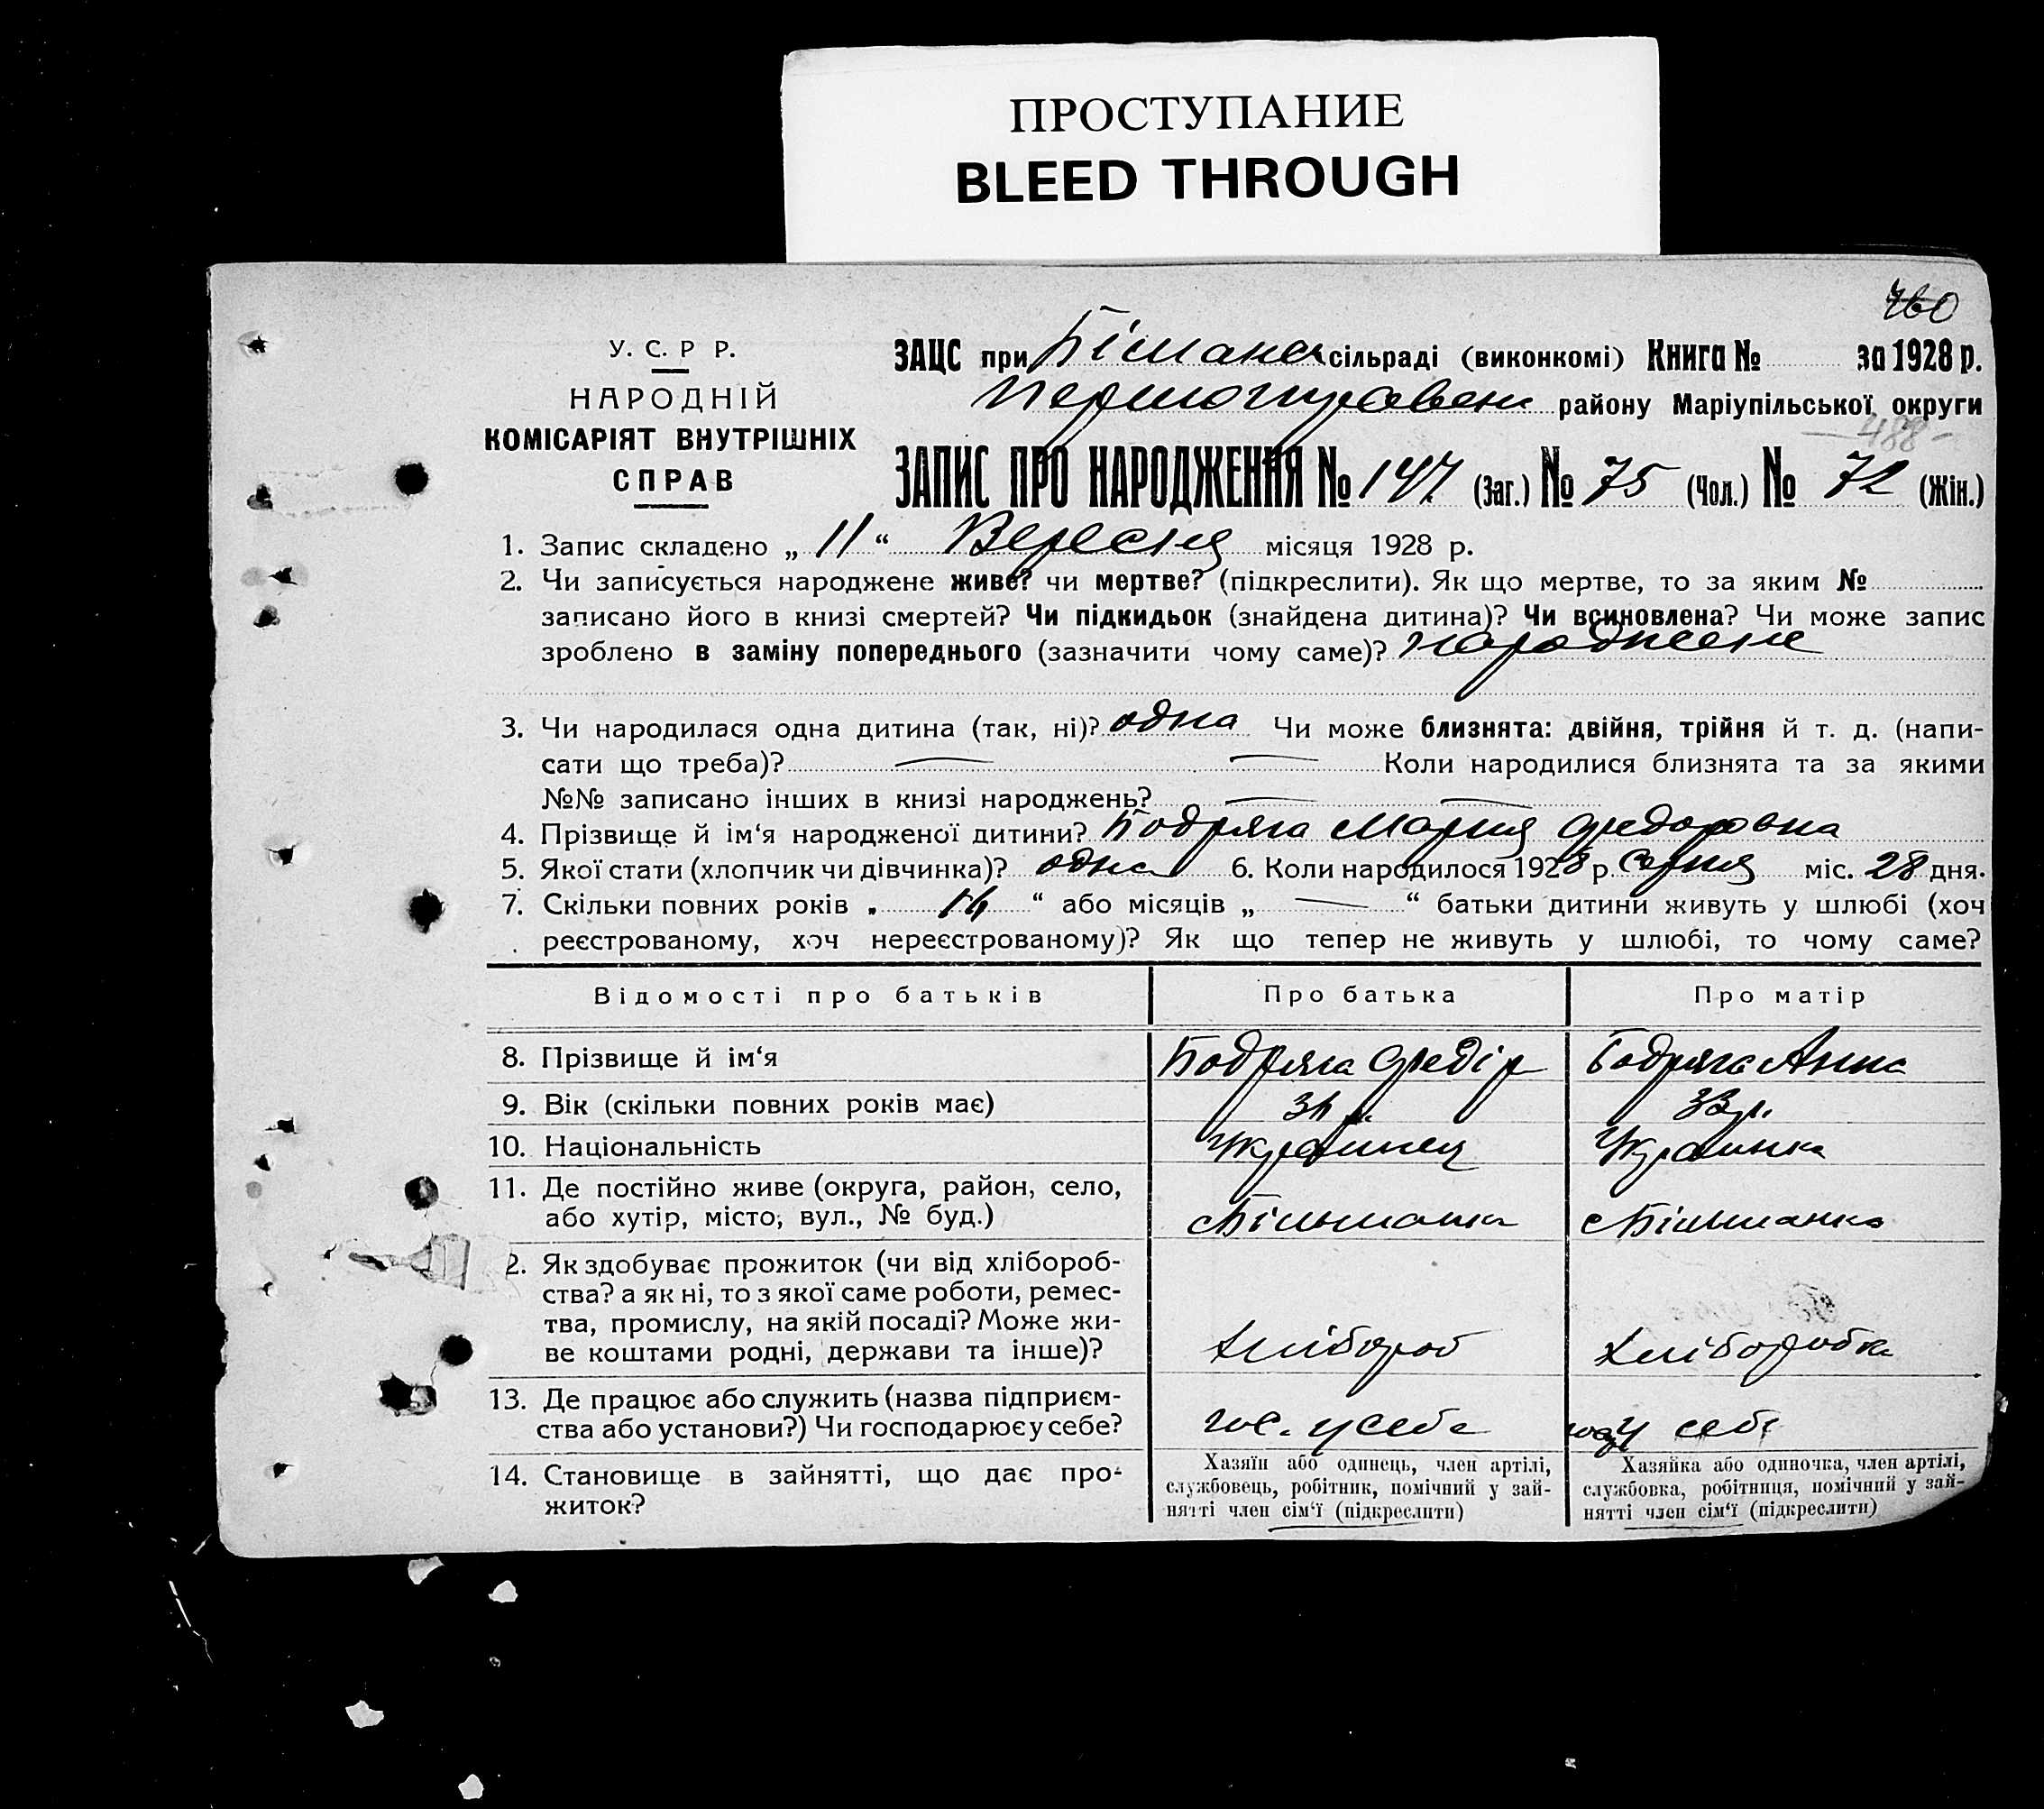 ПРОСТУПАНИЕ
BLEED THROUGH
460
У. С. Р Р.
НАРОДНІЙ
КОМІСАРІЯТ ВНУТРІШНІХ
СПРАВ
ЗАЦС при сільраді (виконкомі) Книга № за 1928 р.
району Маріупільської округи
488-
ЗАПИС ПРО НАРОДЖЕННЯ № 147 (Заг.) № 75 (Чол.) № 72 (Жін.)
1. Запис складено „ 11 “ Вересня місяця 1928 р.
2. Чи записується народжене живе? чи мертве? (підкреслити). Як що мертве, то за яким №
записано його в книзі смертей? Чи підкидьок (знайдена дитина)? Чи всиновлена? Чи може запис
зроблено в заміну попереднього (зазначити чому саме)? народжене
3. Чи народилася одна дитина (так, ні)? одна Чи може близнята: двійня, трійня й т. д. (напи-
сати що треба)? — — Коли народилися близнята та за якими
№№ записано інших в книзі народжень? — —
4. Прізвище й ім‘я народженої дитини? Бодряга Мария Федоровна
5. Якої стати (хлопчик чи дівчинка)? одна 6. Коли народилося 1928 р. Серпня міс. 28 дня.
7. Скільки повних років „ “ або місяців „ — “ батьки дитини живуть у шлюбі (хоч
реєстрованому, хоч нереєстрованому)? Як що тепер не живуть у шлюбі, то чому саме?
Відомості про батьків Про батька Про матір
8. Прізвище й ім‘я Бодряга Федір Бодряга Анна
9. Вік (скільки повних років має) 33 р.
10. Національність Украинец Украинка
11. Де постійно живе (округа, район, село,
або хутір, місто, вул., № буд.) с Більманка с Більманка
2. Як здобуває прожиток (чи від хлібороб-
ства? а як ні, то з якої саме роботи, ремес-
тва, промислу, на якій посаді? Може жи-
ве коштами родні, держави та інше)? Хлібороб Хліборобка
13. Де працює або служить (назва підприєм-
ства або установи?) Чи господарює у себе? гос. у себе у себе
14. Становище в зайнятті, що дає про-
житок?
Хазяїн або одинець, член артілі,
службовець, робітник, помічний у зай-
нятті член сім‘ї (підкреслити)
Хазяйка або одиночка, член артілі,
службовка, робітниця, помічний у зай-
нятті член сім‘ї (підкреслити)